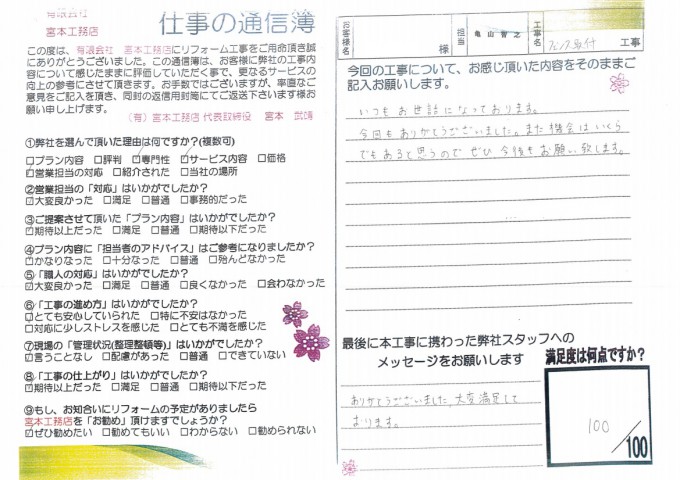 有限会社
宮本工務店
仕事の通信簿
この度は、有限会社 宮本工務店にリフォーム工事をご用命頂き誠
にありがとうございました。この通信簿は、お客様に弊社の工事内
容について感じたままに評価していただく事で、更なるサービスの
向上の参考にさせて頂きます。お手数ではございますが、率直なご
意見をご記入を頂き、同封の返信用封筒にてご返送下さいます様お
願い申し上げます。
(有)宮本工務店 代表取締役 宮本 武晴
①弊社を選んで頂いた理由は何ですか?(複数可)
□プラン内容 □評判 ☑専門性 ☑サービス内容 □価格
☑営業担当の対応 □紹介された □当社の場所
②営業担当の「対応」はいかがでしたか?
☑大変良かった □満足 □普通 □事務的だった
③ご提案させて頂いた「プラン内容」はいかがでしたか?
☑期待以上だった □満足 □普通 □期待以下だった
④プラン内容に「担当者のアドバイス」はご参考になりましたか?
☑かなりなった □十分なった □普通 □殆んどなかった
⑤「職人の対応」はいかがでしたか?
☑大変良かった □満足 □普通 □良くなかった □会わなかった
⑥「工事の進め方」はいかがでしたか?
☑とても安心していられた □特に不安はなかった
□対応に少しストレスを感じた □とても不満を感じた
⑦現場の「管理状況(整理整頓等)」はいかがでしたか?
☑言うことなし □配慮があった □普通 □できていない
⑧「工事の仕上がり」はいかがでしたか?
☑期待以上だった □満足 □普通 □期待以下だった
⑨もし、お知合いにリフォームの予定がありましたら
宮本工務店を「お勧め」頂けますでしょうか?
☑ぜひ勧めたい □勧めてもいい □わからない □勧められない
お客様名 様 担当 亀山智之 工事名 フェンス取付 工事
今回の工事について、お感じ頂いた内容をそのままご
記入お願いします。
いつもお世話になっております。
今回もありがとうございました。また機会はいくら
でもあると思うのでぜひ今後もお願い致します。
最後に本工事に携わった弊社スタッフへの
メッセージをお願いします
ありがとうございました。大変満足して
おります。
満足度は何点ですか?
100
/100